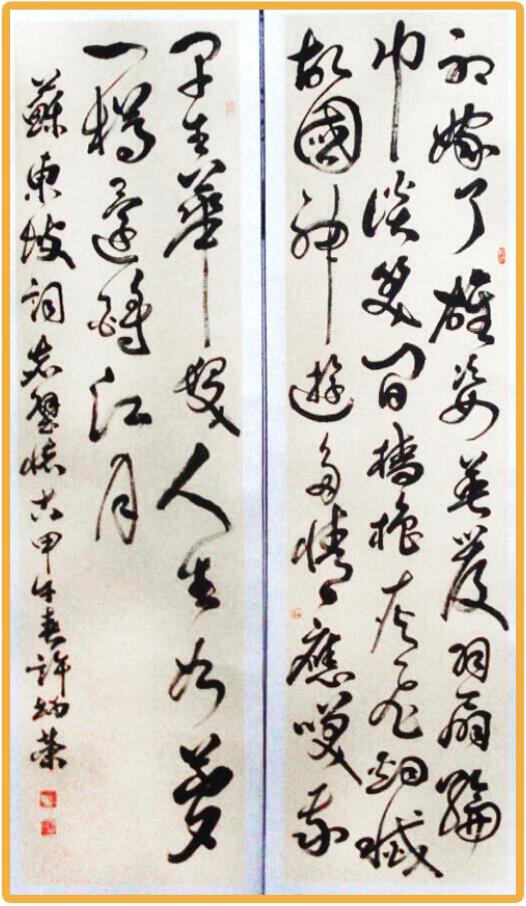 初嫁了雄姿英發羽扇綸
巾談笑間檣櫓灰飛烟滅
故國神遊多情應笑我
早生華髮人生如夢
一樽還酹江月
蘇東坡詞赤壁懷古甲午春許幼榮